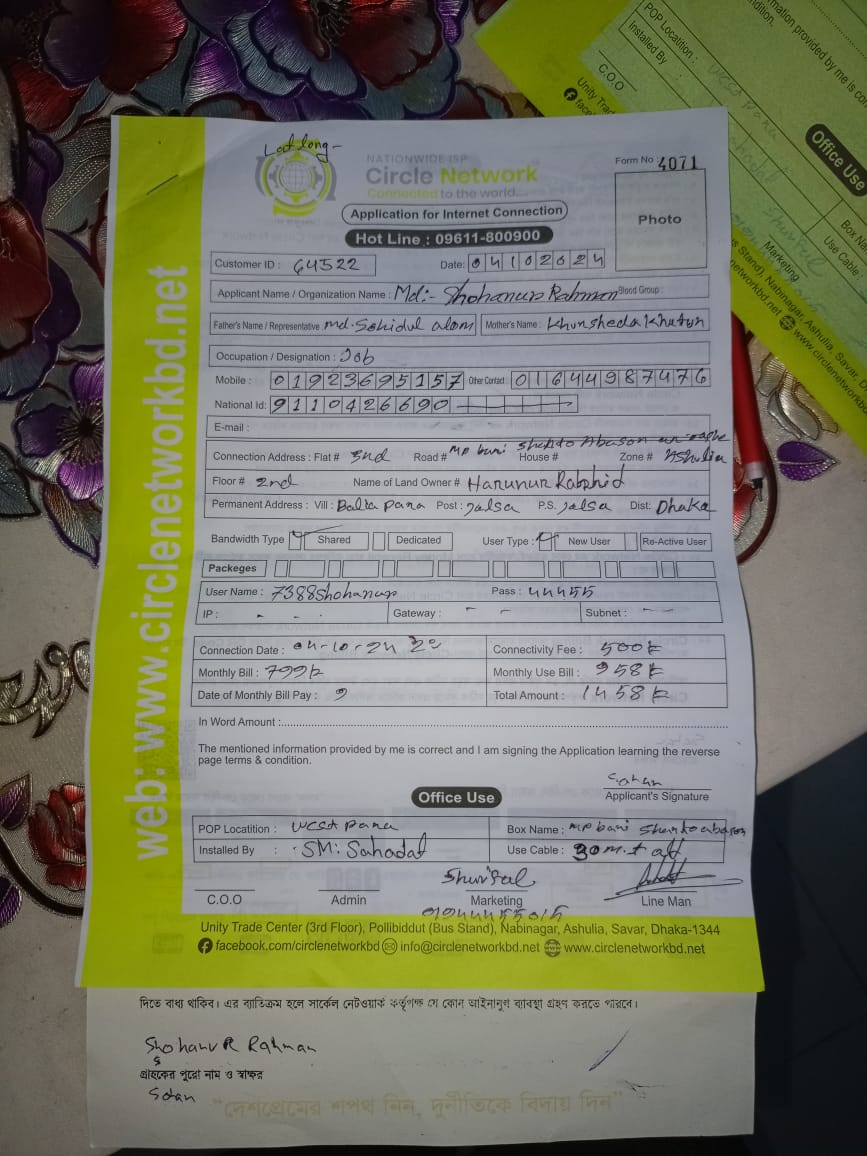 Lat long -
NATIONWIDE ISP
Circle Network
Connected to the world...
Form No 4071
Application for Internet Connection
Photo
Hot Line : 09611-800900
Customer ID : 64522 Date: 04102024
Applicant Name / Organization Name : Md:- Shohanur Rahman Blood Group :
Father's Name / Representative : md. Sohidul alom Mother's Name : Khursheda Khatun
Occupation / Designation : Job
Mobile : 01923695157 Other Contact : 01644987476
National Id: 9110426690
E-mail :
Connection Address : Flat # Road # MP bari Shanto Abason House # Zone # Ashulia
Floor # 2nd Name of Land Owner # Harunur Rashid
Permanent Address : Vill : Balia Para Post : Jalsa P.S. Jalsa Dist: Dhaka
Bandwidth Type Shared Dedicated User Type : New User Re-Active User
Packeges
User Name : 7388Shohanur Pass : 44455
IP : - - - Gateway : - - Subnet : - -
Connection Date : 04-10-24 Connectivity Fee : 500
Monthly Bill : 799 Monthly Use Bill : 958
Date of Monthly Bill Pay : 9 Total Amount : 1458
In Word Amount :
The mentioned information provided by me is correct and I am signing the Application learning the reverse
page terms & condition.
Sohan
Applicant's Signature
Office Use
POP Locatition : West para Box Name : MP bari Shantoabason
Installed By : SM: Sahadat Use Cable : 30 mit
C.O.O Admin Marketing Line Man
01944455015
Unity Trade Center (3rd Floor), Pollibiddut (Bus Stand), Nabinagar, Ashulia, Savar, Dhaka-1344
facebook.com/circlenetworkbd info@circlenetworkbd.net www.circlenetworkbd.net
web: www.circlenetworkbd.net
দিতে বাধ্য থাকিব। এর ব্যাতিক্রম হলে সার্কেল নেটওয়ার্ক কর্তৃপক্ষ যে কোন আইনানুগ ব্যাবস্থা গ্রহণ করতে পারবে।
ShohanuR Rahman
গ্রাহকের পুরো নাম ও স্বাক্ষর
Sohan
"দেশপ্রেমের শপথ নিন, দুর্নীতিকে বিদায় দিন"
mation provided by me is co
ndition.
POP Locatition : West Para
Installed By
C.O.O
Office Use
Box Na
Use Cable :
Marketing
Unity Trad
us Stand), Nabinagar, Ashulia, Savar,
networkbd.net www.circlenetwork